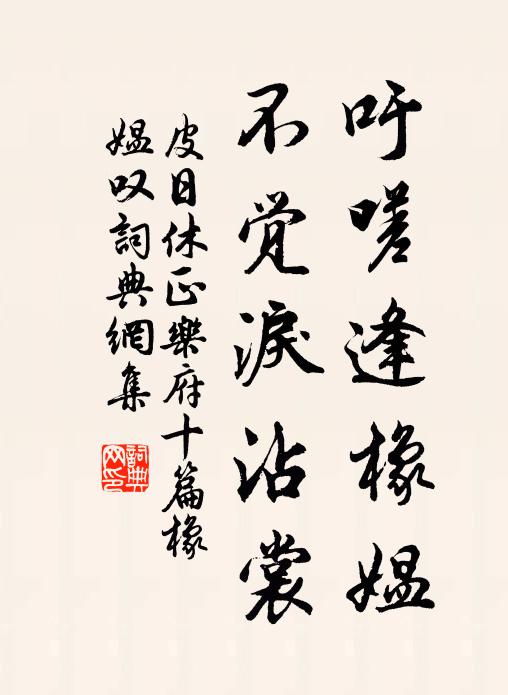 吁嗟逢橡媪
不觉淚沾裳
皮日休正樂府十篇橡
媪叹詞典網集
詞典
网印